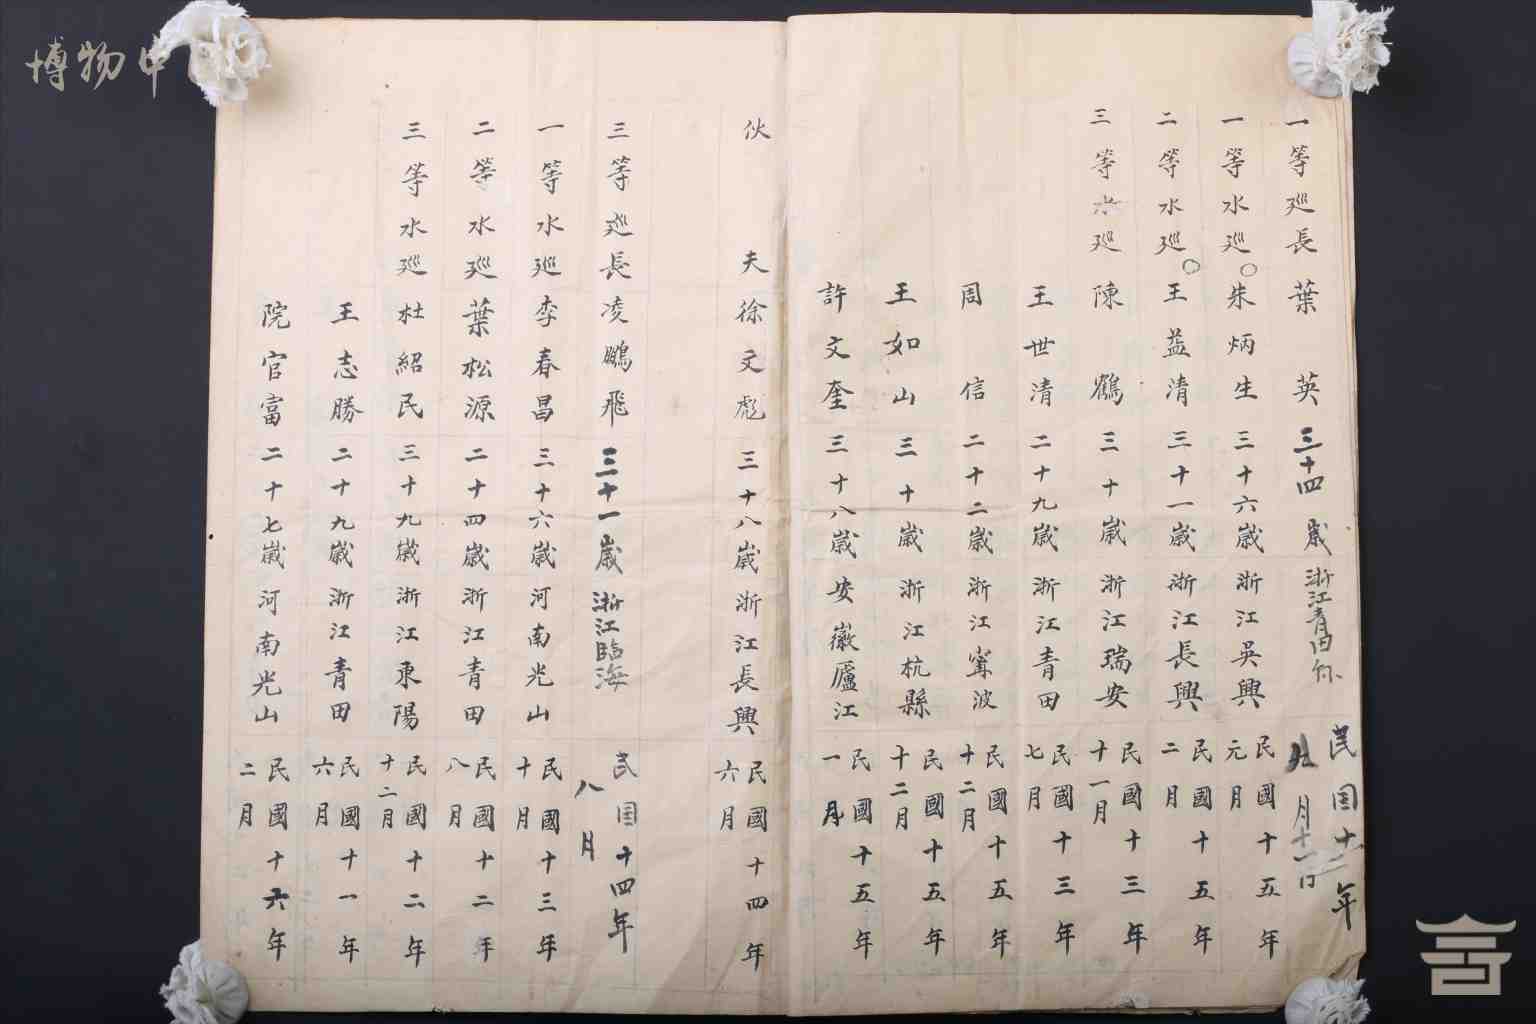 博物中
一等巡長葉英三十四歲浙江青田縣民国十二年九月十一日
一等水巡朱炳生三十六歲浙江吳興民國十五年元月
二等水巡王益清三十一歲浙江長興民國十五年二月
三等水巡陳鶴三十歲浙江瑞安民國十三年十一月
王世清二十九歲浙江青田民國十三年七月
周信二十二歲浙江寧波民國十五年十二月
王如山三十歲浙江杭縣民國十五年十二月
許文奎三十八歲安徽廬江民國十五年一月
伙夫徐文彪三十八歲浙江長興民國十四年六月
三等巡長凌鵬飛三十一歲浙江臨海民国十四年八月
一等水巡李春昌三十六歲河南光山民國十三年十月
二等水巡葉松源二十四歲浙江青田民國十二年八月
三等水巡杜紹民三十九歲浙江東陽民國十二年十二月
王志勝二十九歲浙江青田民國十一年六月
院官富二十七歲河南光山民國十六年二月